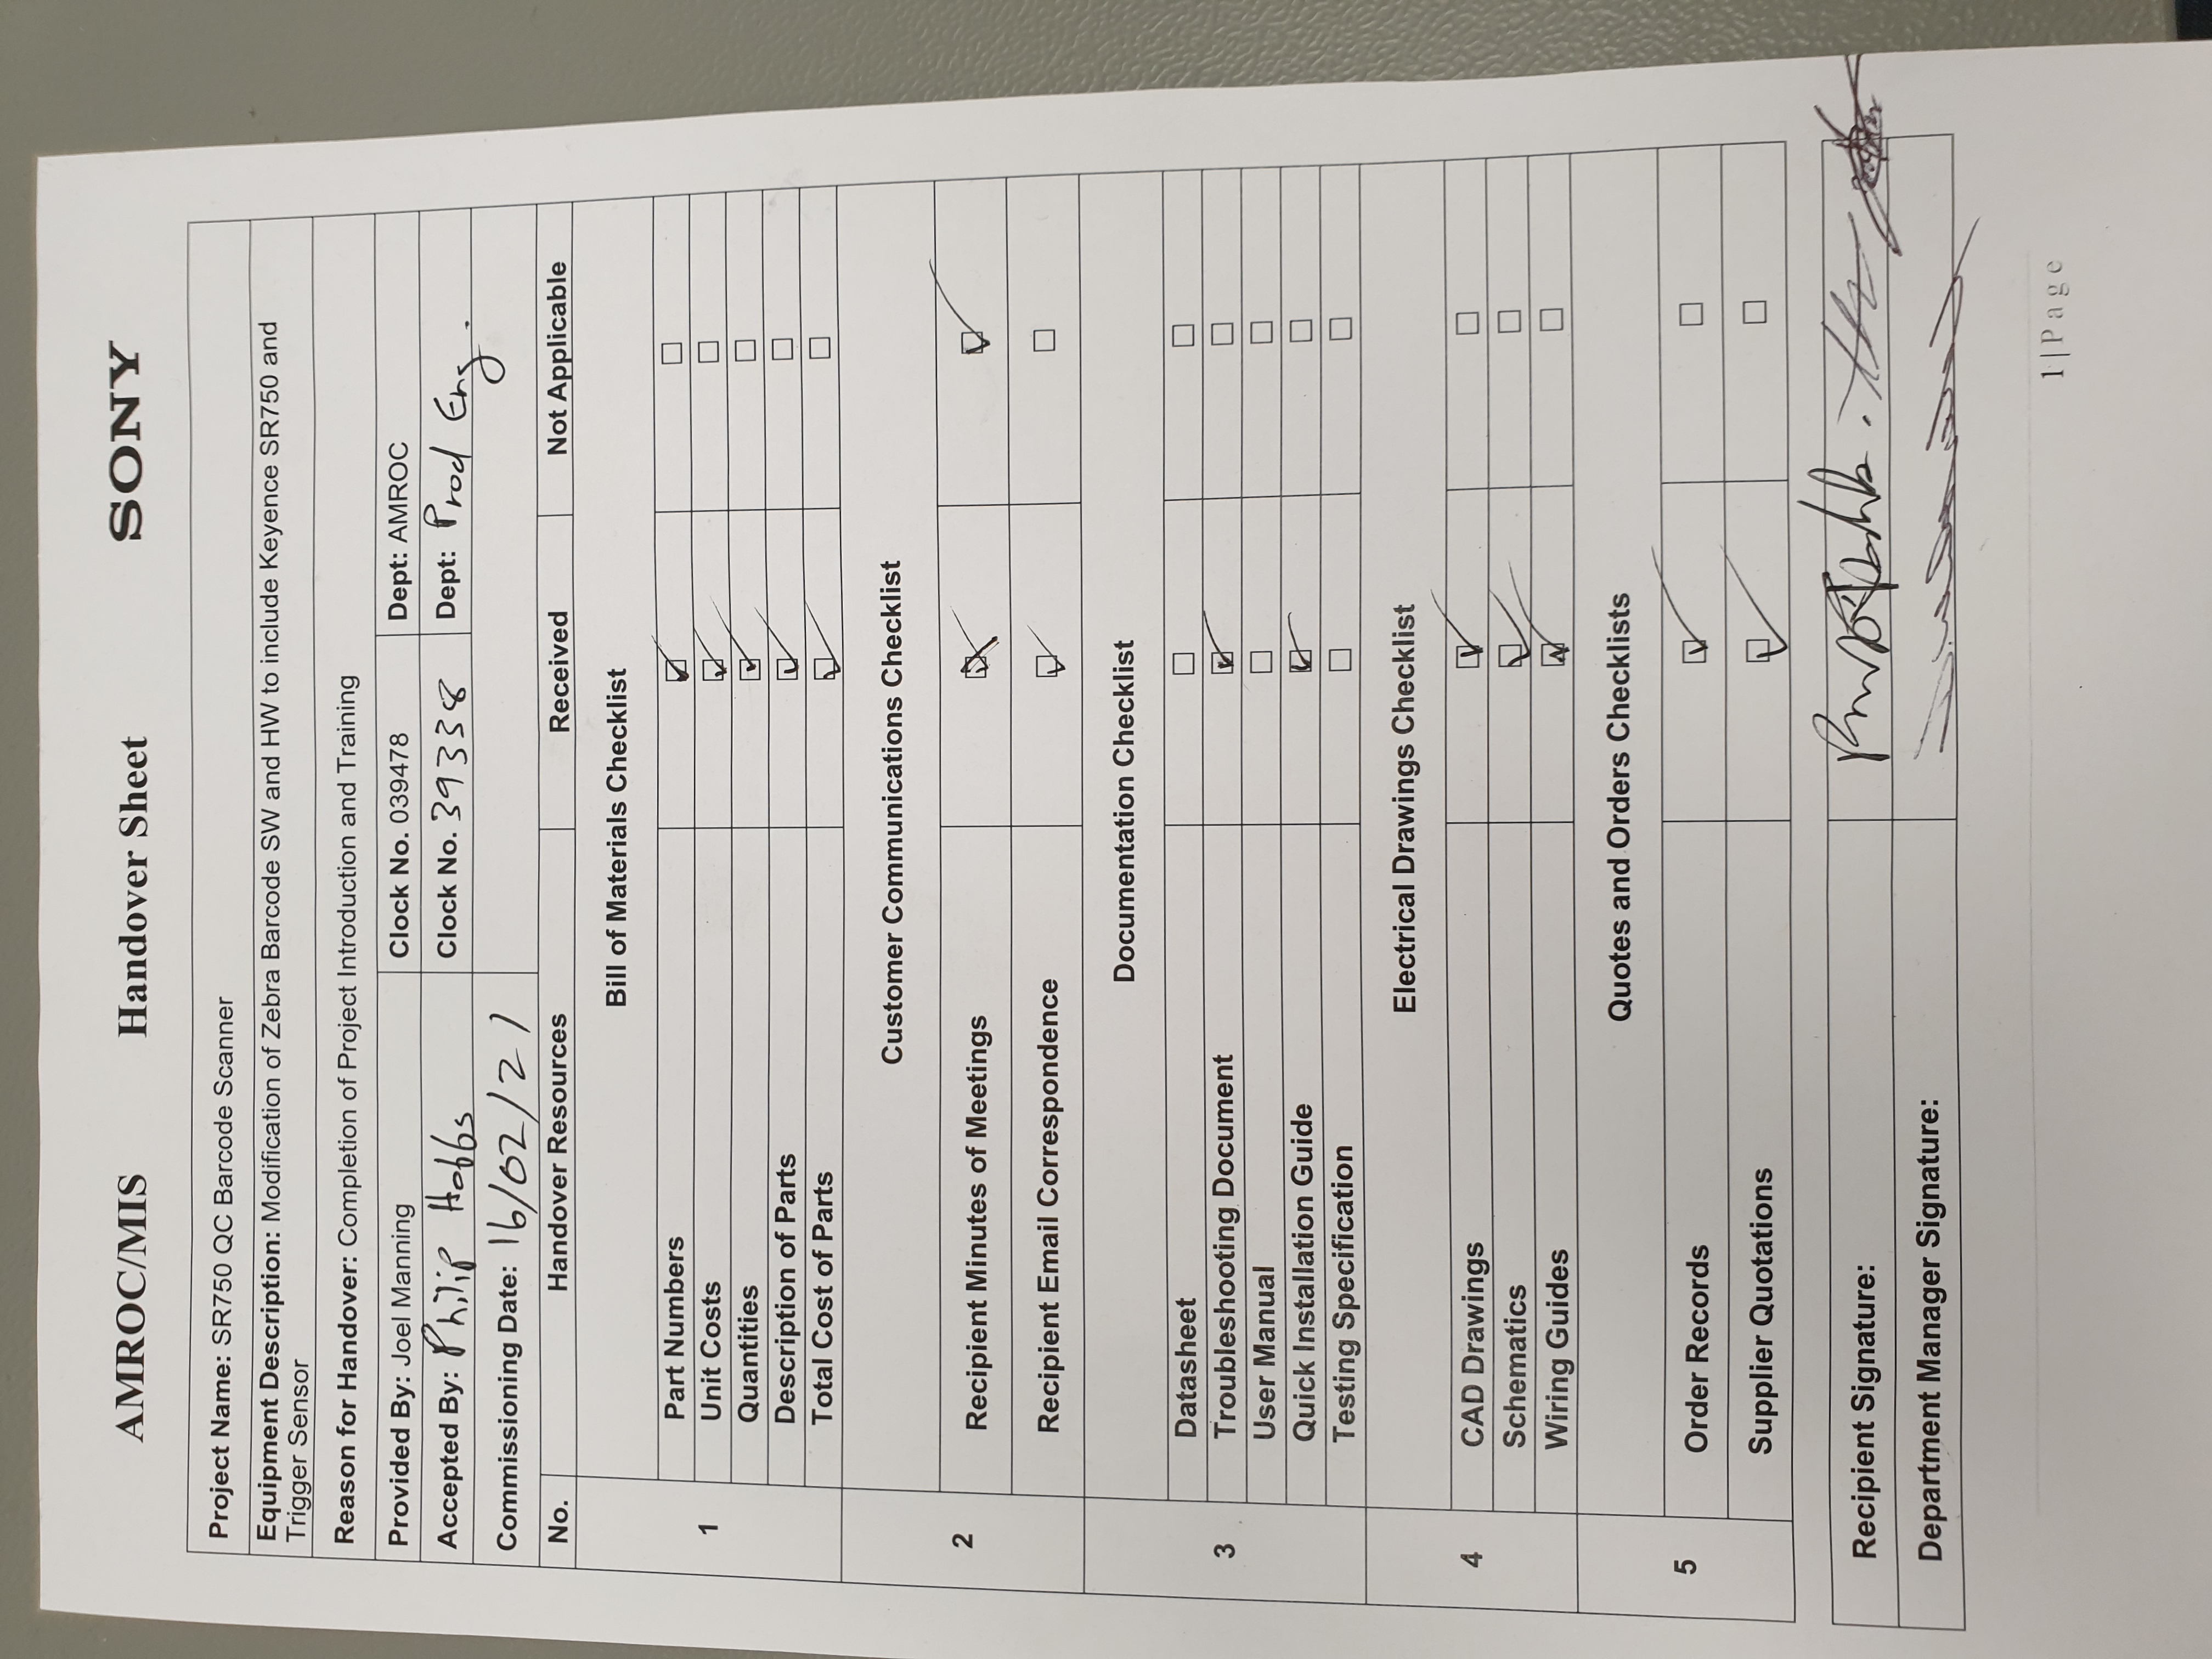 AMROC/MIS Handover Sheet SONY
Project Name: SR750 QC Barcode Scanner
Equipment Description: Modification of Zebra Barcode SW and HW to include Keyence SR750 and
Trigger Sensor
Reason for Handover: Completion of Project Introduction and Training
Provided By: Joel Manning Clock No. 039478 Dept: AMROC
Accepted By: Philip Hobbs Clock No. 39338 Dept: Prod Eng.
Commissioning Date: 16/02/21
No. Handover Resources Received Not Applicable
Bill of Materials Checklist
1
Part Numbers
Unit Costs
Quantities
Description of Parts
Total Cost of Parts
Customer Communications Checklist
2
Recipient Minutes of Meetings
Recipient Email Correspondence
Documentation Checklist
3
Datasheet
Troubleshooting Document
User Manual
Quick Installation Guide
Testing Specification
Electrical Drawings Checklist
4
CAD Drawings
Schematics
Wiring Guides
Quotes and Orders Checklists
5
Order Records
Supplier Quotations
Recipient Signature:
Department Manager Signature:
1 | Page